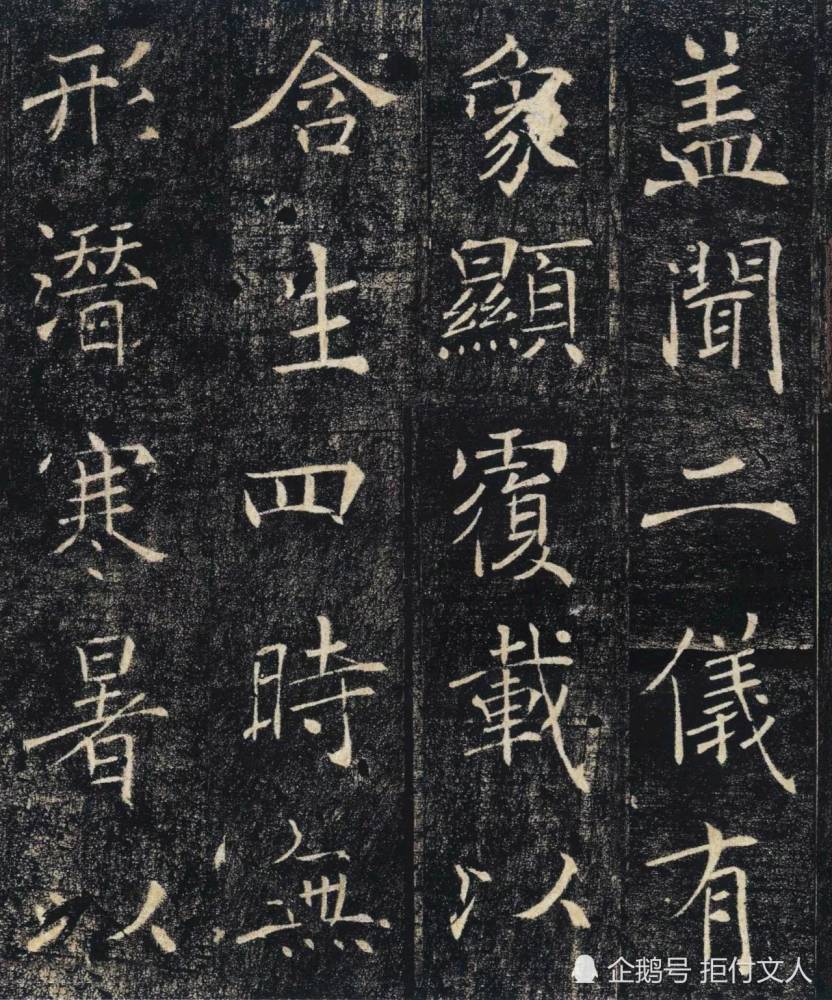 盖聞二儀有
象顯覆載以
含生四時無
形潛寒暑以
企鹅号 拒付文人